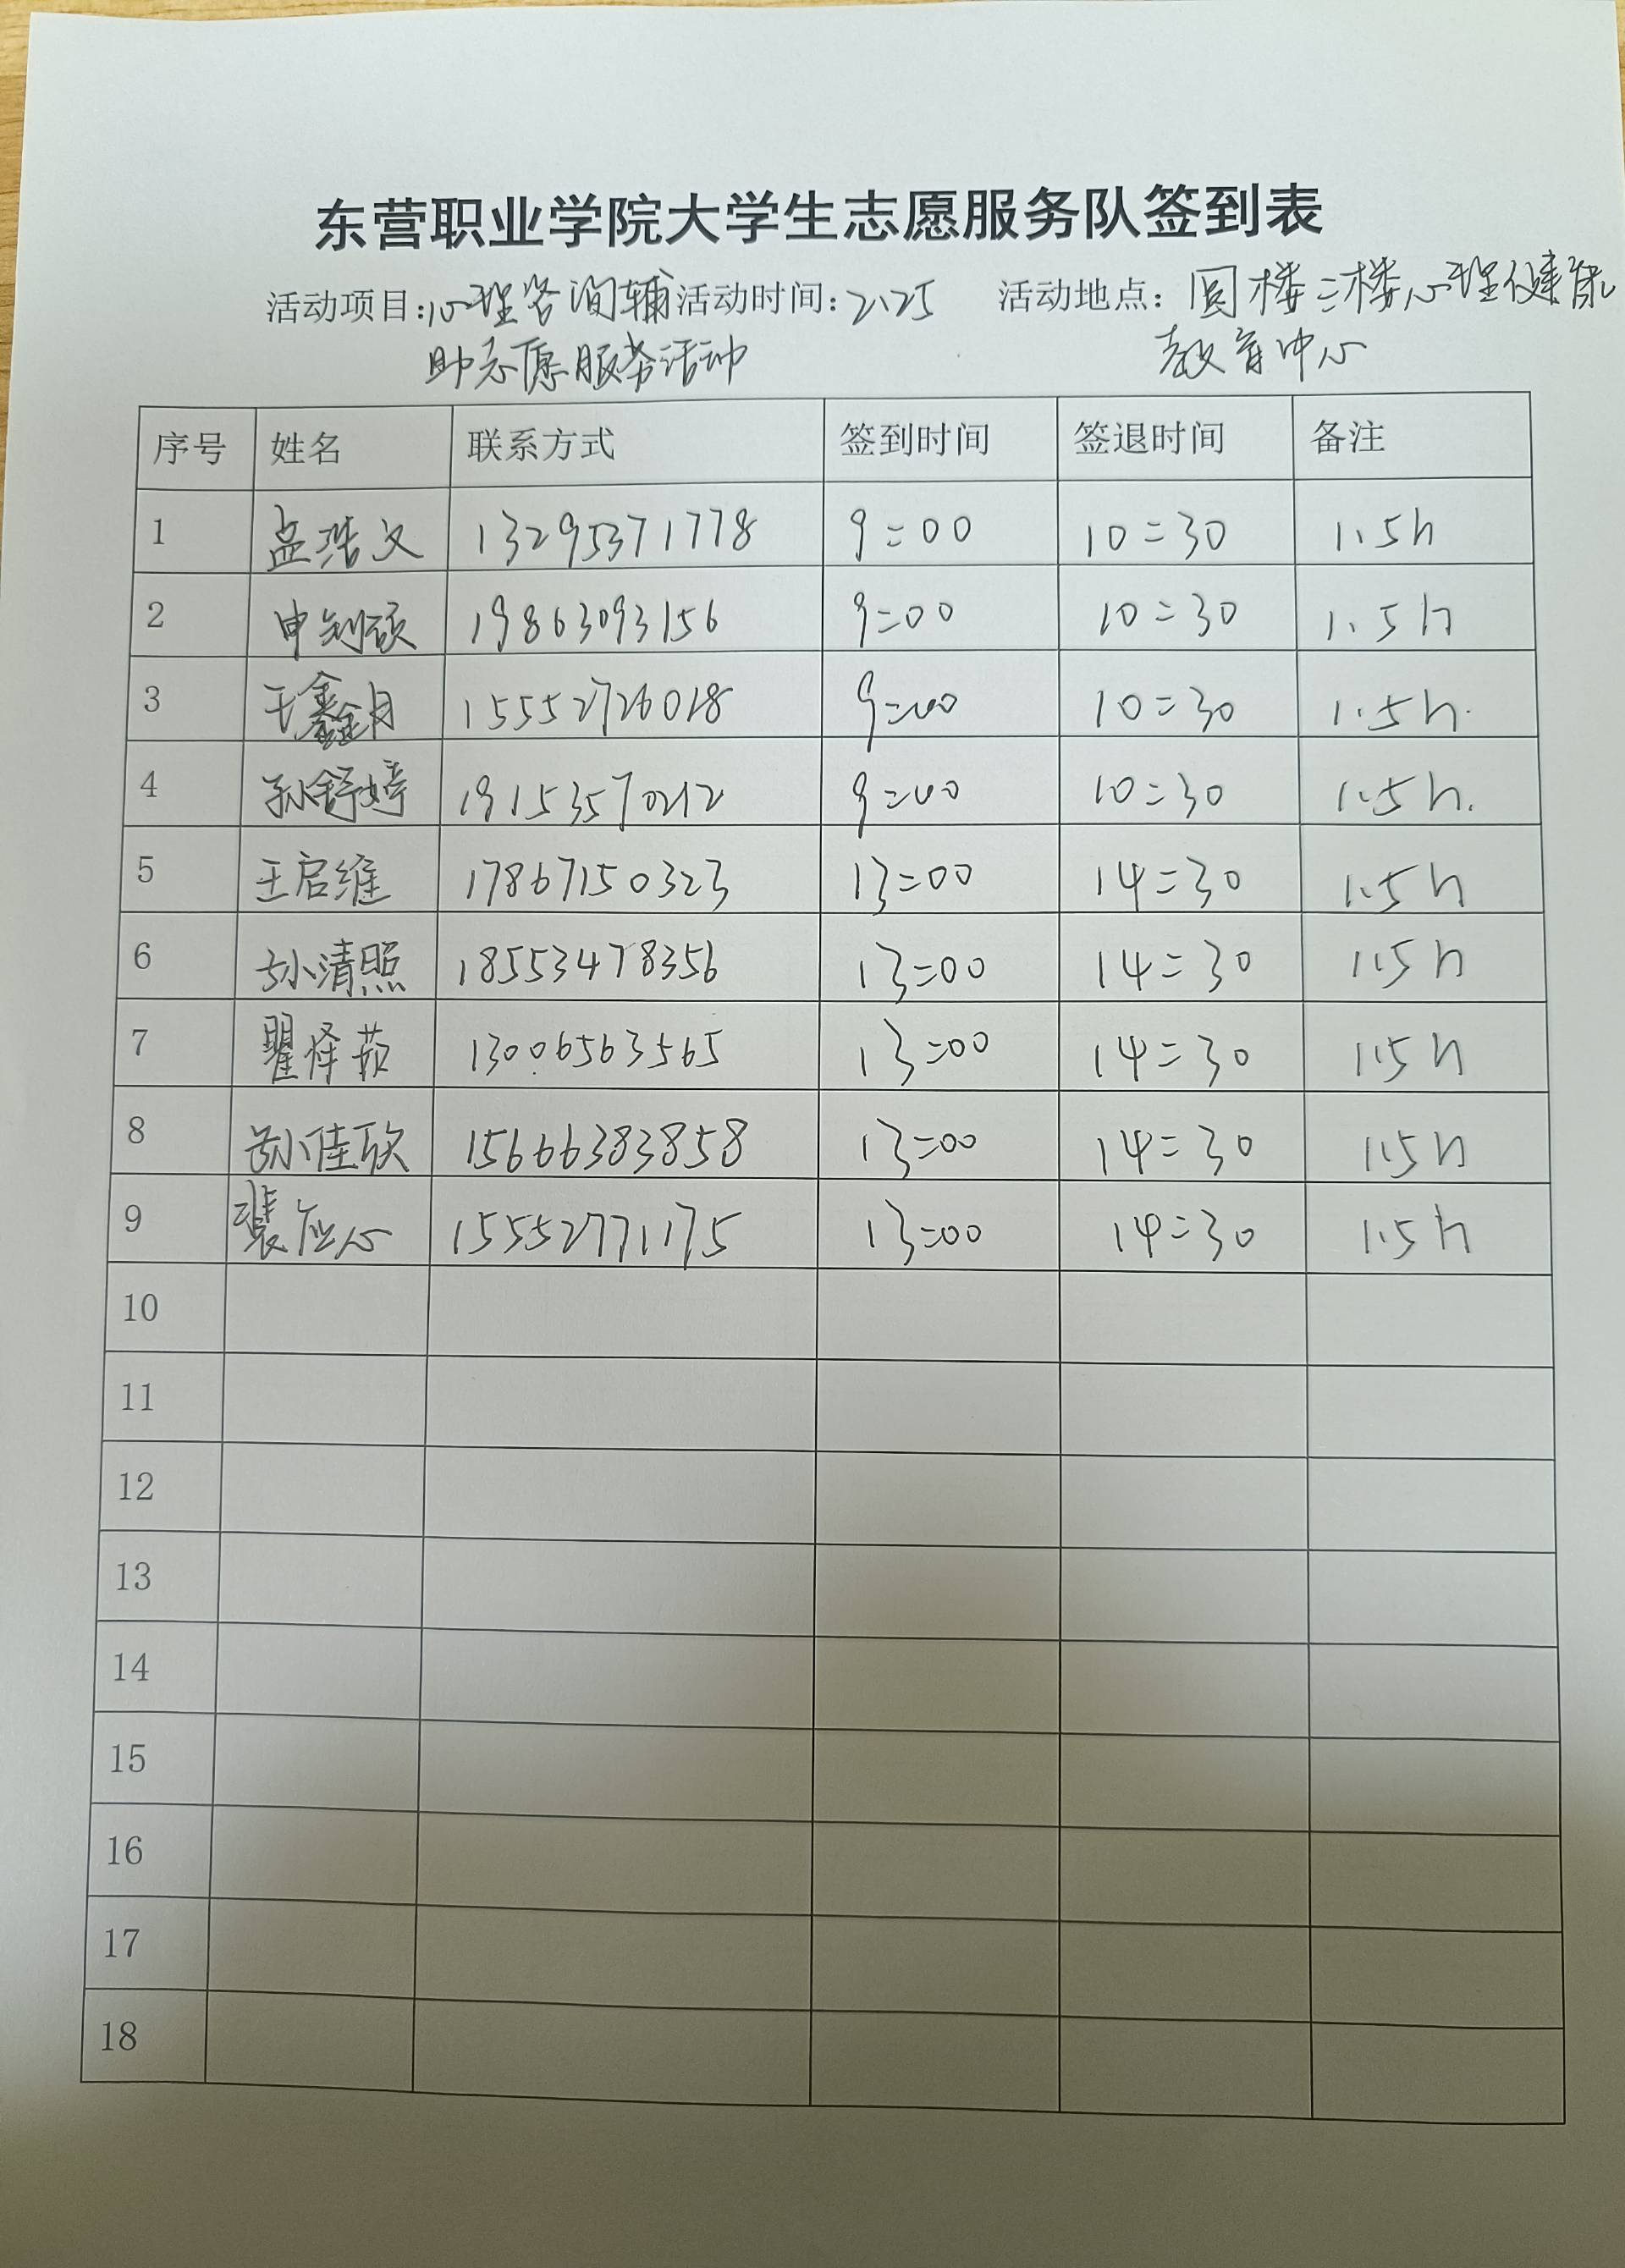 东营职业学院大学生志愿服务队签到表
活动项目:心理咨询辅 活动时间:2.25 活动地点:圆楼三楼心理健康
助志愿服务活动 教育中心
序号 姓名 联系方式 签到时间 签退时间 备注
1 孟琪文 13295371778 9:00 10:30 1.5h
2 申硕 19863093156 9:00 10:30 1.5h
3 王鑫月 15552726018 9:00 10:30 1.5h.
4 孙舒婷 19153570212 9:00 10:30 1.5h.
5 王启维 17867150323 13:00 14:30 1.5h
6 孙清照 18553478356 13:00 14:30 1.5h
7 翟怿茹 13006563565 13:00 14:30 1.5h
8 孙佳欣 15666383858 13:00 14:30 1.5h
9 裴应心 15552771175 13:00 14:30 1.5h
10
11
12
13
14
15
16
17
18